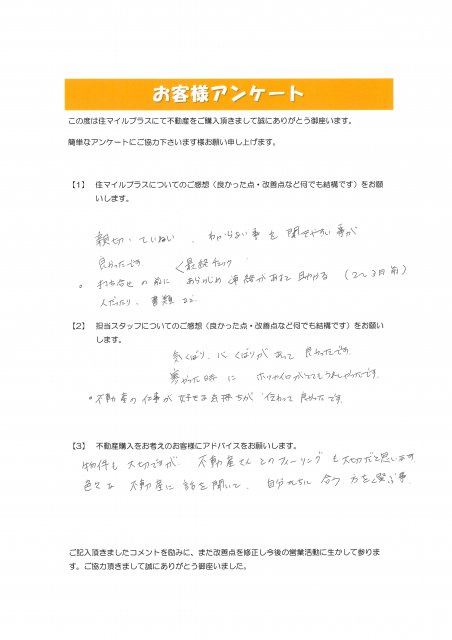 お客様アンケート
この度は住マイルプラスにて不動産をご購入頂きまして誠にありがとう御座います。
簡単なアンケートにご協力下さいます様お願い申し上げます。
【1】 住マイルプラスについてのご感想（良かった点・改善点など何でも結構です）をお願
いします。
親切、ていねい、わからない事を聞きやすい事が
良かったです
最終チェック
。打ち合せの前に あらかじめ連絡があると助かる（2〜3日前）
書類など
【2】 担当スタッフについてのご感想（良かった点・改善点など何でも結構です）をお願い
します。
気くばり、心くばりがあって良かったです。
寒かった時に ホッカイロがとてもうれしかったです。
。不動産の仕事が好きな気持ちが伝わって良かったです。
【3】 不動産購入をお考えのお客様にアドバイスをお願いします。
物件も大切ですが 不動産さんとのフィーリングも大切だと思います
色々な不動産に話を聞いて、自分たちに合う方を選ぶ事
ご記入頂きましたコメントを励みに、また改善点を修正し今後の営業活動に生かして参りま
す。ご協力頂きまして誠にありがとう御座いました。